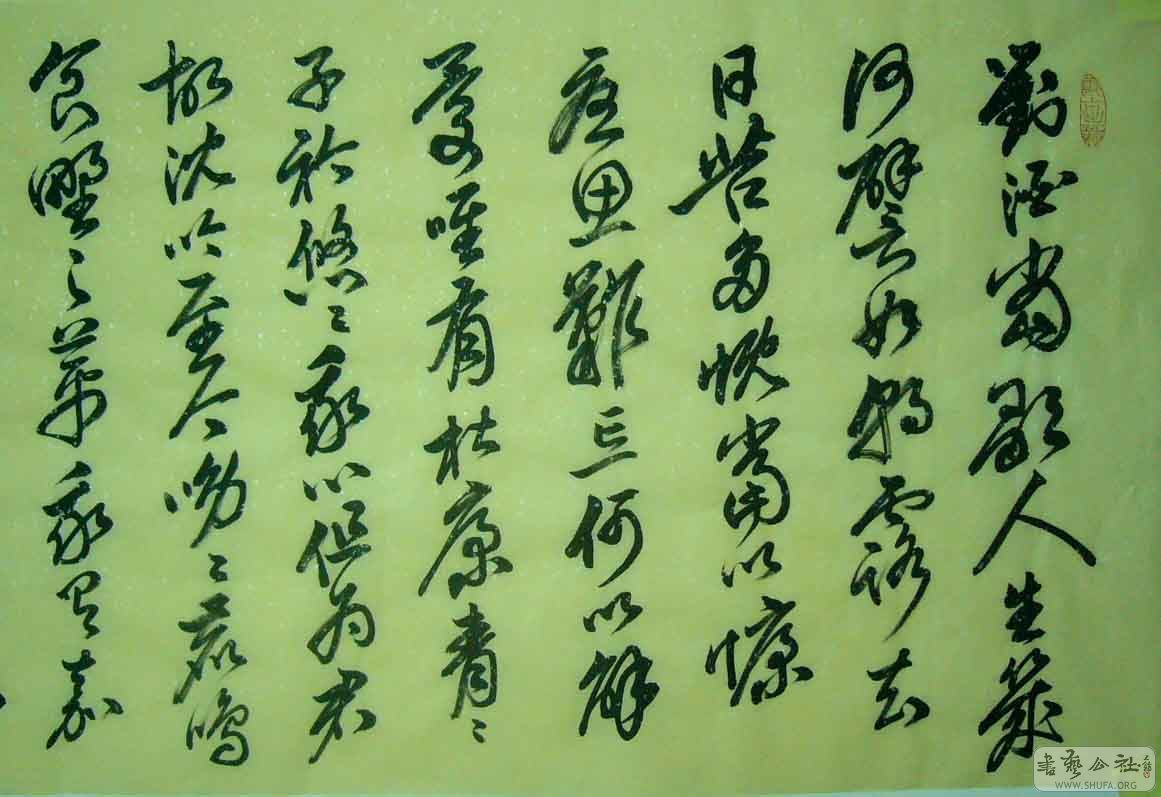 對酒當歌人生幾
何譬如朝露去
日苦多慨當以慷
思難忘何以解
憂唯有杜康青〻
子衿悠〻我心但為君
故沈吟至今呦〻鹿鳴
食野之苹我有嘉
書藝公社
WWW.SHUFA.ORG